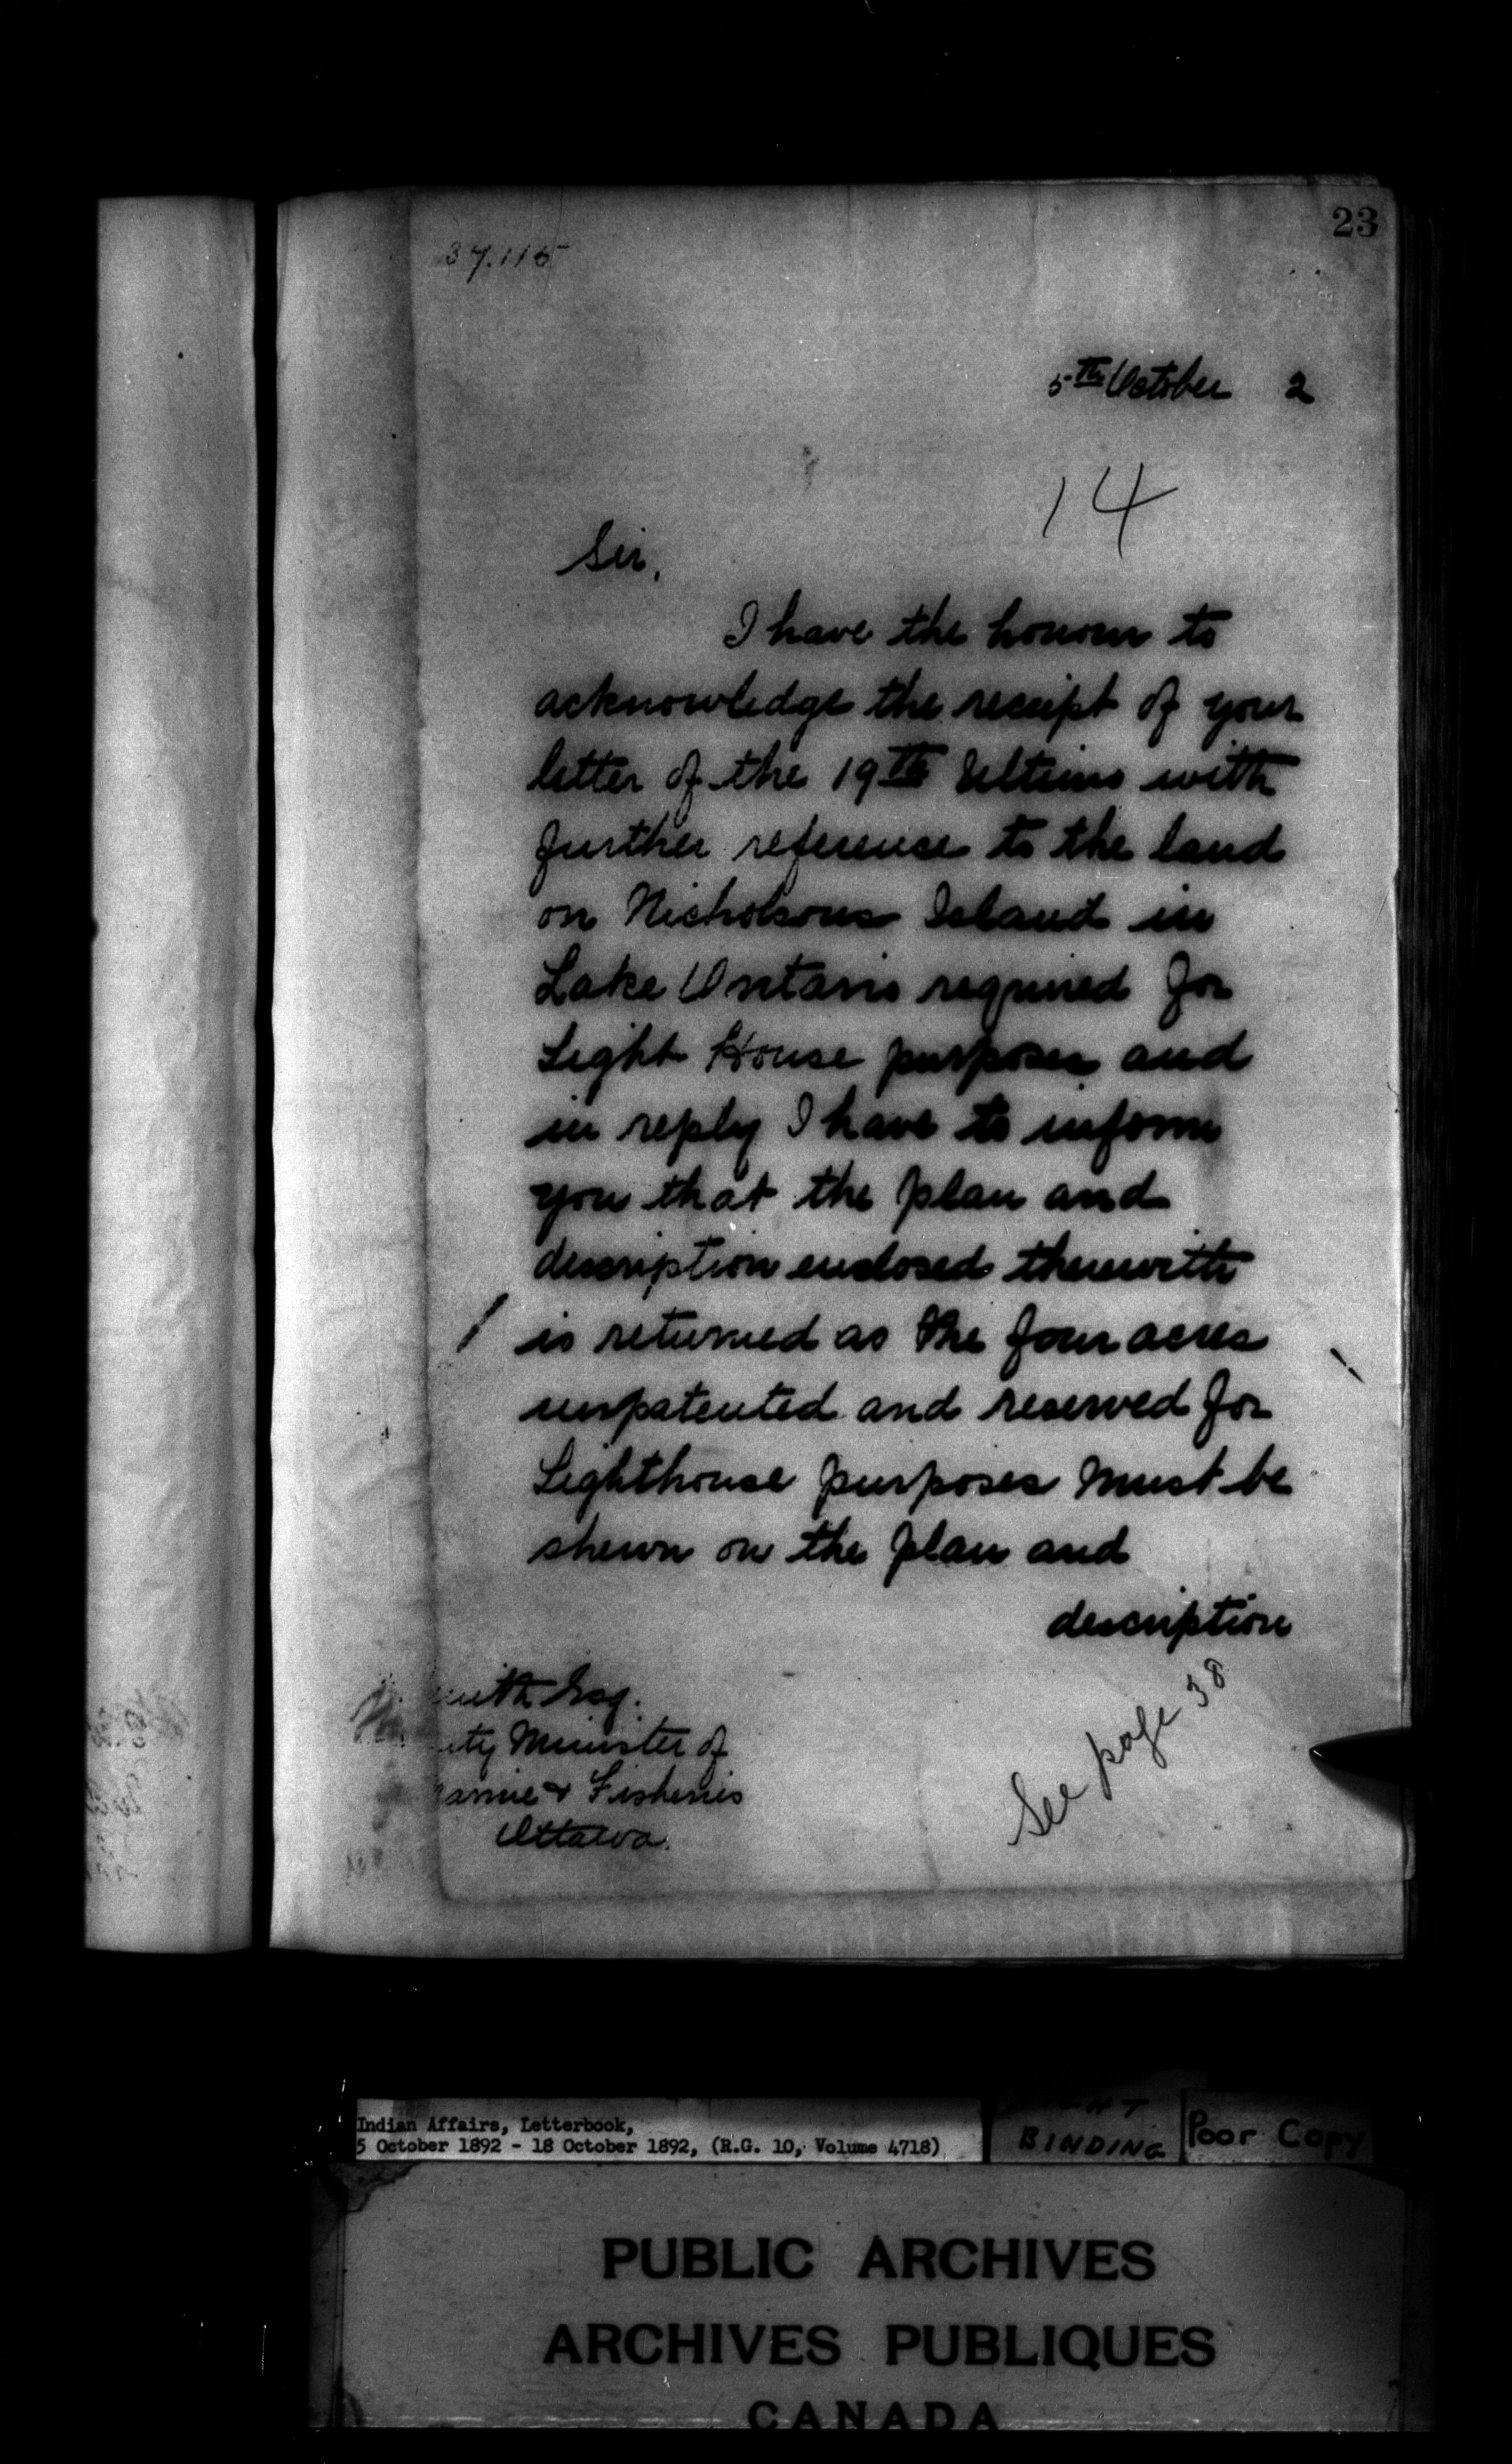 23
37.115
5th October 2
14
Sir,
I have the honour to
acknowledge the receipt of your
letter of the 19th Ultimo with
further reference to the land
on Nicholsons Island in
Lake Ontario required for
Light House purposes and
in reply I have to inform
you that the plan and
description enclosed therewith
is returned as the four acres
unpatented and reserved for
Lighthouse purposes must be
shewn on the plan and
description
mith Esq.
uty Minister of
arine & Fisheries
Ottawa.
See page 38
Indian Affairs, Letterbook,
5 October 1892 - 18 October 1892, (R.G. 10, Volume 4718)
BINDING
Poor Copy
PUBLIC ARCHIVES
ARCHIVES PUBLIQUES
CANADA